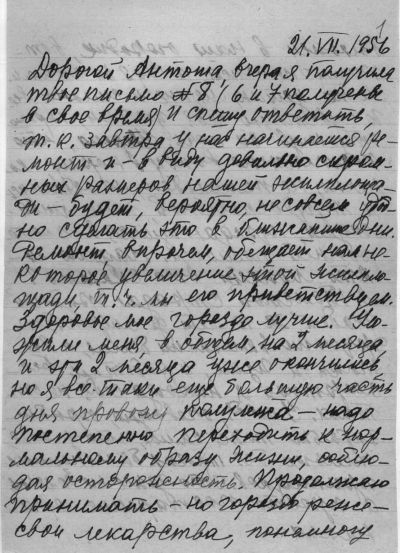 1
21.VII.1956
Дорогой Антоша, вчера я получила
твое письмо №8 (6 и 7 получены
в свое время) и спешу ответить,
т.к. завтра у нас начинается ре-
монт и – в виду довольно скром-
ных размеров нашей жилплоща-
ди – будет, вероятно, не совсем
но сделать это в ближайшие дни.
Ремонт, впрочем, обещает нам не-
которое увеличение этой жилпло-
щади т.ч. мы его приветствуем.
Здоровье мое гораздо лучше. Уло-
жили меня в общем, на 2 месяца
и эти 2 месяца уже окончились
но я все-таки еще большую часть
дня провожу полулежа – надо
постепенно переходить к нор-
мальному образу жизни, соблю-
дая осторожность. Продолжаю
принимать – но гораздо реже –
свои лекарства, понемногу